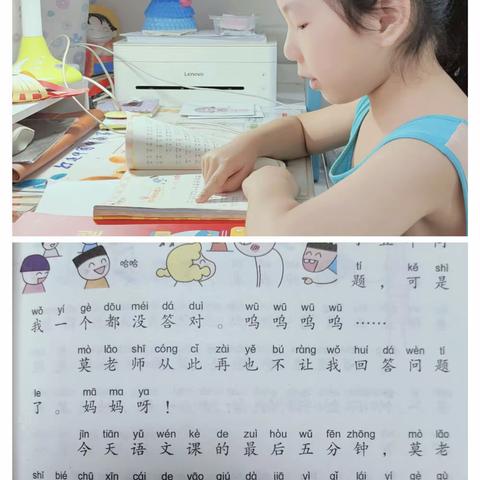 Lenovo
哈哈
tí kě shì
题，可是
wǒ yí gè dōu méi dá duì wū wū wū wū
我一个都没答对。呜呜呜呜……
mò lǎo shī cóng cǐ zài yě bú ràng wǒ huí dá wèn tí
莫老师从此再也不让我回答问题
le mā ma ya
了。妈妈呀！
jīn tiān yǔ wén kè de zuì hòu wǔ fēn zhōng mò lǎo
今天语文课的最后五分钟，莫老